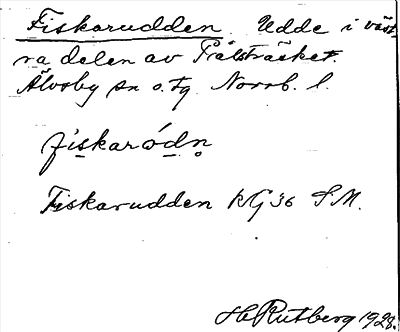 Fiskarudden Udde i väst-
ra delen av Trälsträsket.
Älvsby sn o. tg Norrb. l.
fiskaródn
Fiskarudden KG 36 S.M.
H Rutberg 1928.